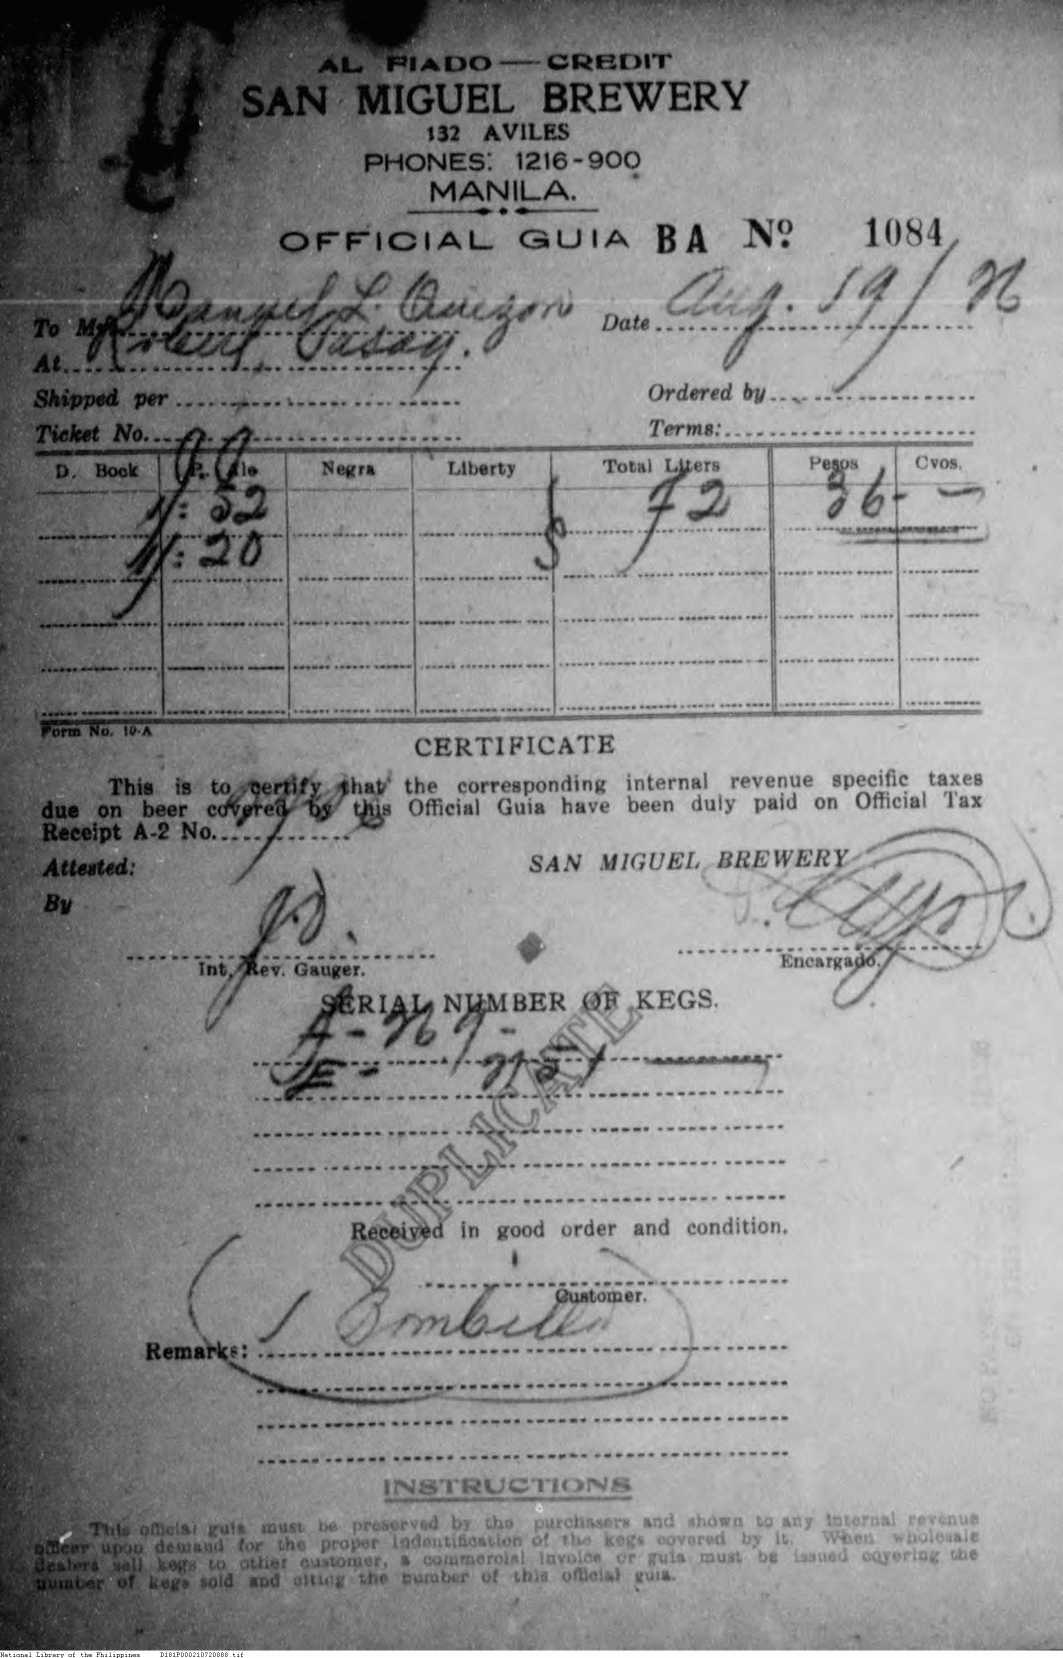 AL FIADO — CREDIT
SAN MIGUEL BREWERY
132 AVILES
PHONES: 1216-900
MANILA.
OFFICIAL GUIA BA Nº 1084
To Mr. Manuel L. Quezon Date Aug. 19/
At Pasay.
Shipped per Ordered by
Ticket No. Terms:
D. Book P. Ale Negra Liberty Total Liters Pesos Cvos.
: 52 72 36 - —
: 20
Form No. 10-A
CERTIFICATE
This is to certify that the corresponding internal revenue specific taxes
due on beer covered by this Official Guia have been duly paid on Official Tax
Receipt A-2 No.
Attested: SAN MIGUEL BREWERY
By
Int. Rev. Gauger. Encargado.
SERIAL NUMBER OF KEGS.
DUPLICATE
Received in good order and condition.
Customer.
1 Bombilla
Remarks:
INSTRUCTIONS
This official guia must be preserved by the purchasers and shown to any internal revenue
officer upon demand for the proper indentification of the kegs covered by it. When wholesale
dealers sell kegs to other customer, a commercial invoice or guia must be issued covering the
number of kegs sold and citing the number of this official guia.
National Library of the Philippines D181P000210720888.tif